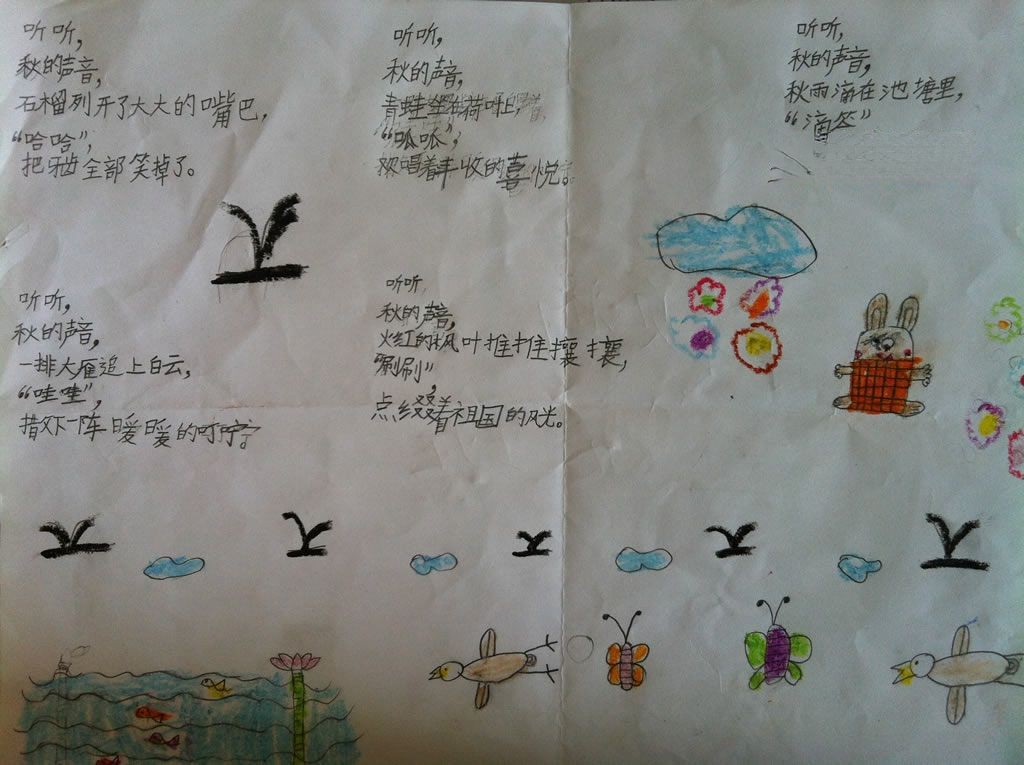 听听,
秋的声音,
石榴列开了大大的嘴巴,
“哈哈”,
把牙齿全部笑掉了。
听听,
秋的声音,
青蛙坐在荷叶上
“呱呱”,
唱着丰收的喜悦。
听听,
秋的声音,
秋雨滴在池塘里,
“滴答”
听听,
秋的声音,
一排大雁追上白云,
“哇哇”,
下一阵暖暖的叮咛。
听听,
秋的声音,
火红的枫叶推推攘攘,
“唰唰”,
点缀着祖国的风光。